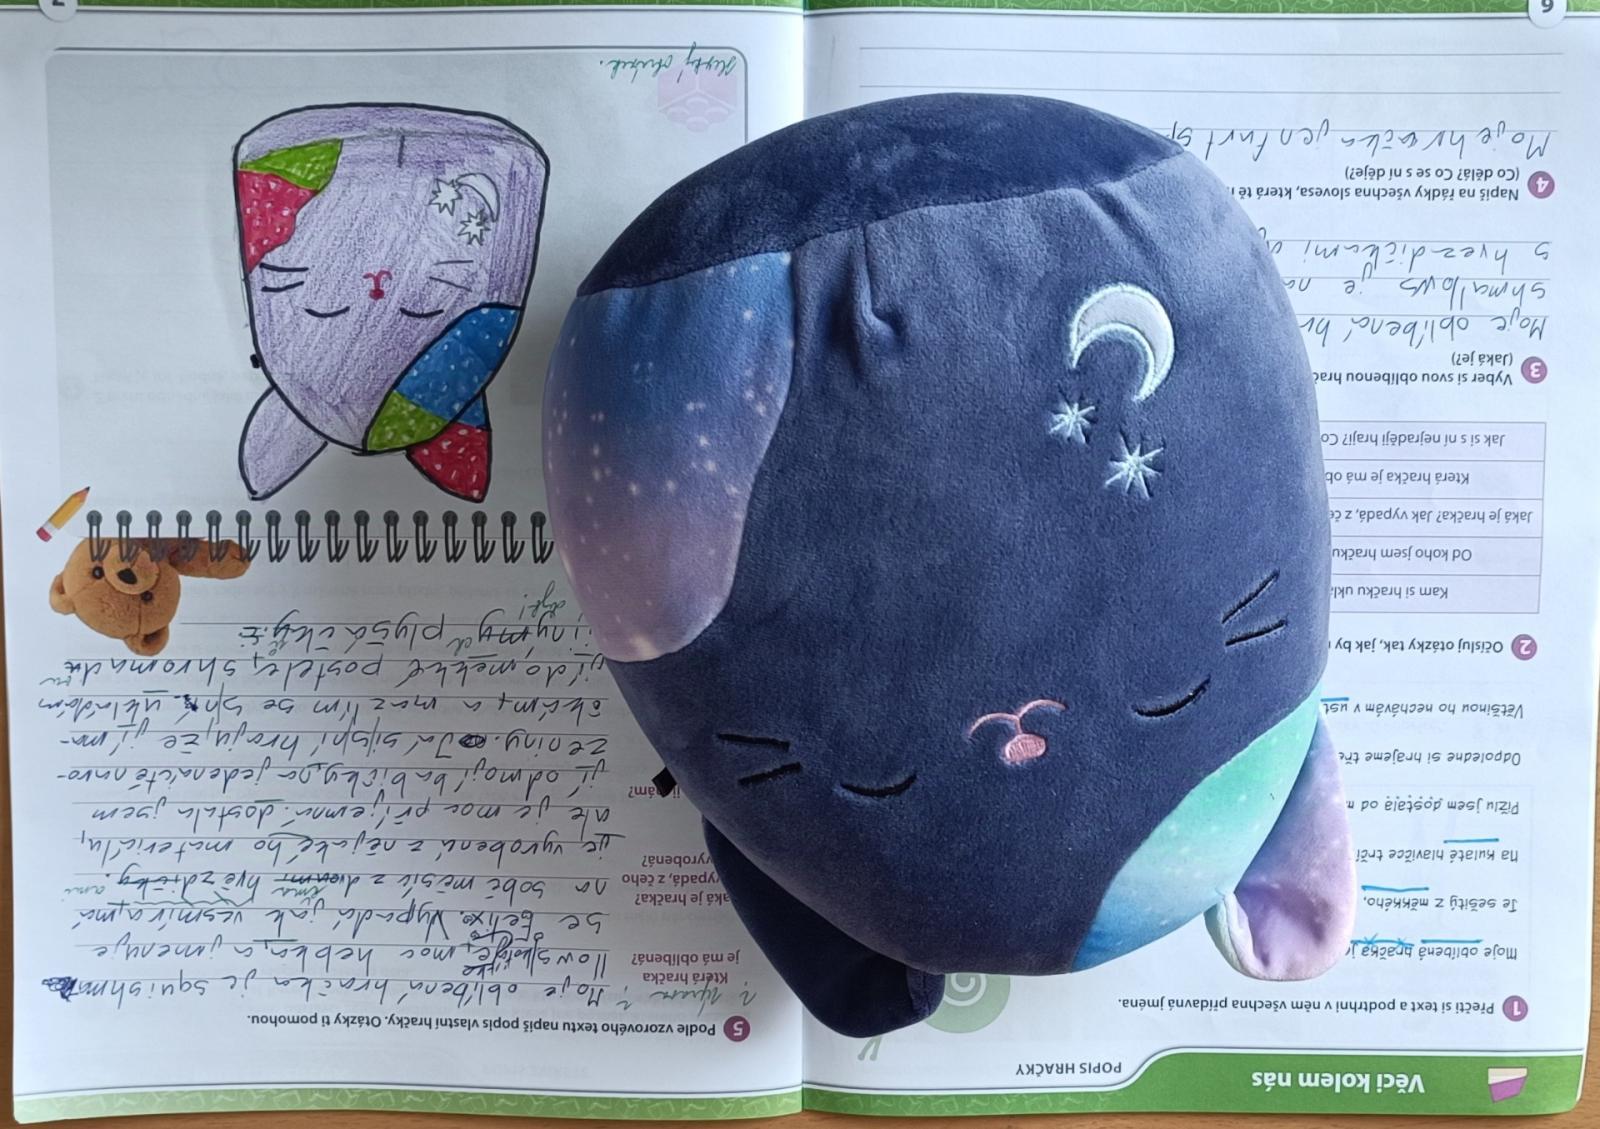 6
Věci kolem nás
POPIS HRAČKY
1 Přečti si text a podtrhni v něm všechna přídavná jména.
Moje oblíbená hračka j
Je sešitý z měkkého,
Na kulaté hlavičce trčí
Pížlu jsem dostala od m
Odpoledne si hrajeme tře
Většinou ho nechávám v ust
2 Očísluj otázky tak, jak by
Kam si hračku uklá
Od koho jsem hračku
Jaká je hračka? Jak vypadá, z če
Která hračka je má ob
Jak si s ní nejraději hraji? Co
3 Vyber si svou oblíbenou hrač
(Jaká je?)
Moje oblíbená hr
shmallows je na
s hvezdičkami
4 Napiš na řádky všechna slovesa, která tě n
(Co dělá? Co se s ní děje?)
Moje hračka jen furt sp
7
5 Podle vzorového textu napiš popis vlastní hračky. Otázky ti pomohou.
Která hračka
je má oblíbená?
aká je hračka?
vypadá, z čeho
vyrobená?
ji mám?
Moje oblíbená hračka je squishma
llows je moc hebká a jmenuje
se Vypadá jak vesmír a má
na sobě měsíc z hvězdičky.
je vyrobená z nějakého materiálu,
ale je moc příjemná. dostala jsem
jí od mojí babičky na jedenácté naro-
zeniny. Já si s ní hraju, že jí ma-
čkám, a mazlím se s ní. ukládám
jí do mekké postele, s hromadu
plyšáčky
dyk!
Hezký obrázek.